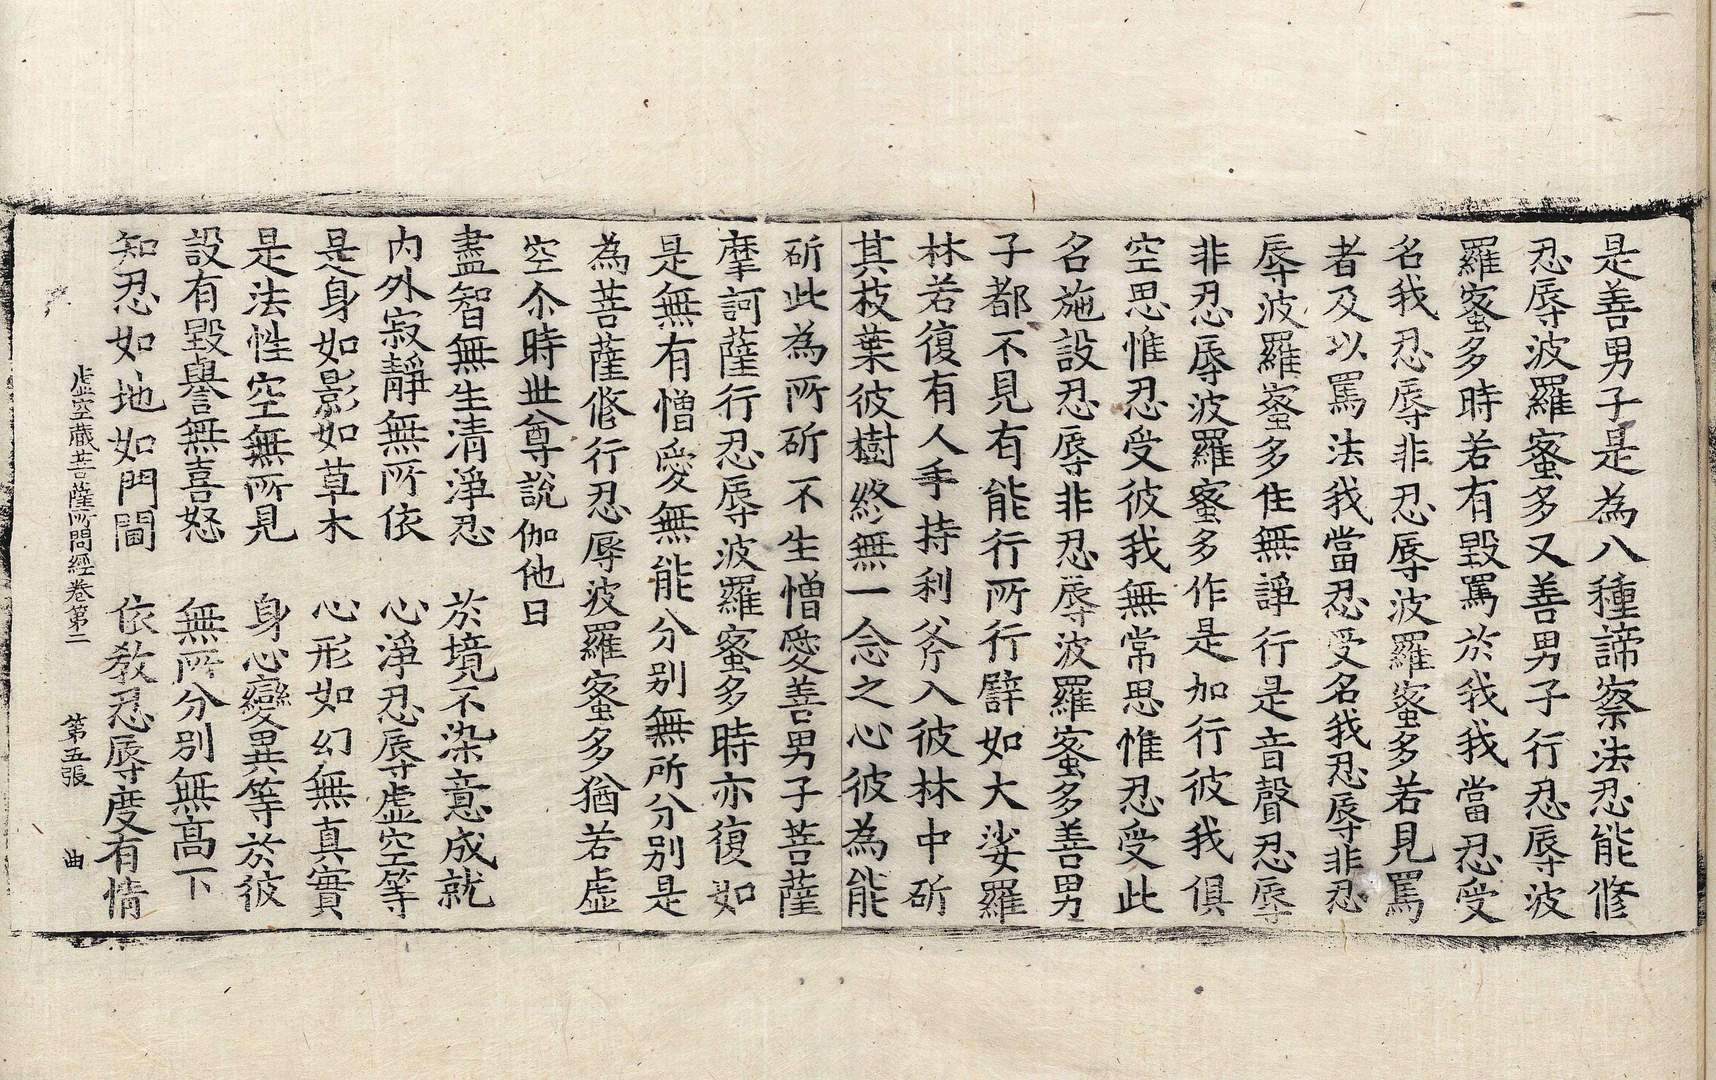 是善男子是為八種諦察法忍能修
忍辱波羅蜜多又善男子行忍辱波
羅蜜多時若有毀罵於我我當忍受
名我忍辱非忍辱波羅蜜多若見罵
者及以罵法我當忍受名我忍辱非忍
辱波羅蜜多住無諍行是音聲忍辱
非忍辱波羅蜜多作是加行彼我俱
空思惟忍受彼我無常思惟忍受此
名施設忍辱非忍辱波羅蜜多善男
子都不見有能行所行譬如大娑羅
林若復有人手持利斧入彼林中斫
其枝葉彼樹終無一念之心彼為能
斫此為所斫不生憎愛善男子菩薩
摩訶薩行忍辱波羅蜜多時亦復如
是無有憎愛無能分別無所分別是
為菩薩修行忍辱波羅蜜多猶若虛
空尒時世尊說伽他曰
盡智無生清淨忍　於境不染意成就
內外寂靜無所依　心淨忍辱虛空等
是身如影如草木　心形如幻無真實
是法性空無所見　身心變異等於彼
設有毀譽無喜怒　無所分別無高下
知忍如地如門閫　依教忍辱度有情
虛空藏菩薩所問經卷第二　第五張　曲